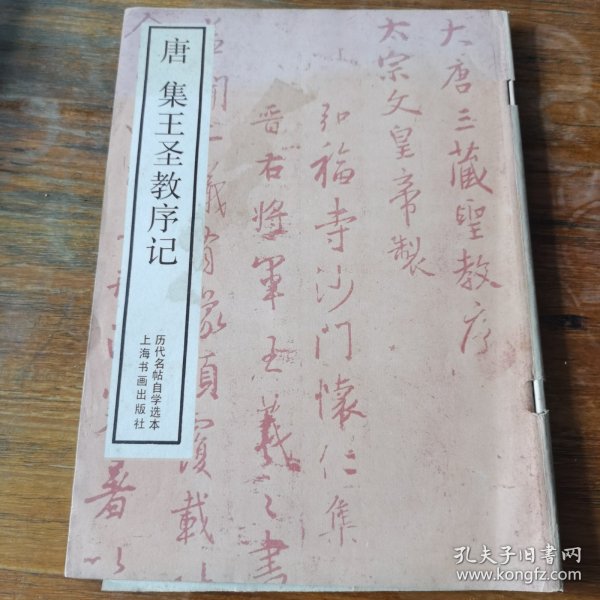 唐 集王圣教序记
历代名帖自学选本
上海书画出版社
大唐三藏聖教序
太宗文皇帝製
弘福寺沙门懷仁集
晋右将軍王羲之書
顯覆載
著以
孔夫子旧书网
www.kongfz.com